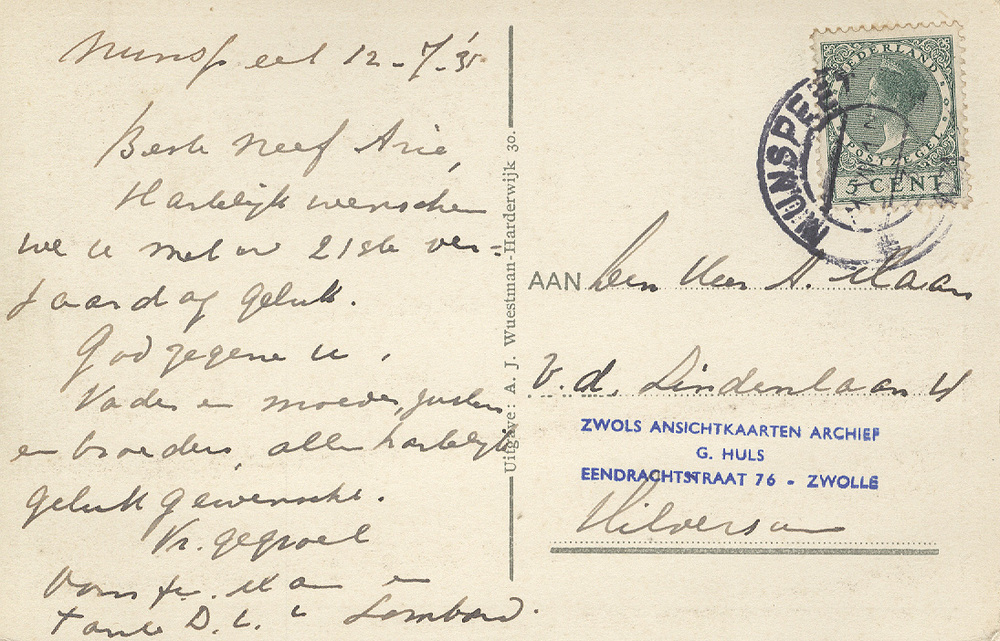 Nunspeet 12-7-'35
Beste Neef Arie,
Hartelijk wenschen
we u met uw 21ste ver-
jaardag geluk.
God zegene u,
Vader en moeder, zusters
en broeders, allen hartelijk
geluk gewenscht.
Vr. gegroet
van fr. Man en
tante D. L. " Lombard.
Uitgave: A. J. Wuestman-Harderwijk 30.
NEDERLAND
POSTZEGEL
5 CENT
NUNSPEET
AAN den Heer A. Maan
V.d. Lindenlaan 4
ZWOLS ANSICHTKAARTEN ARCHIEF
G. HULS
EENDRACHTSTRAAT 76 - ZWOLLE
Hilversum